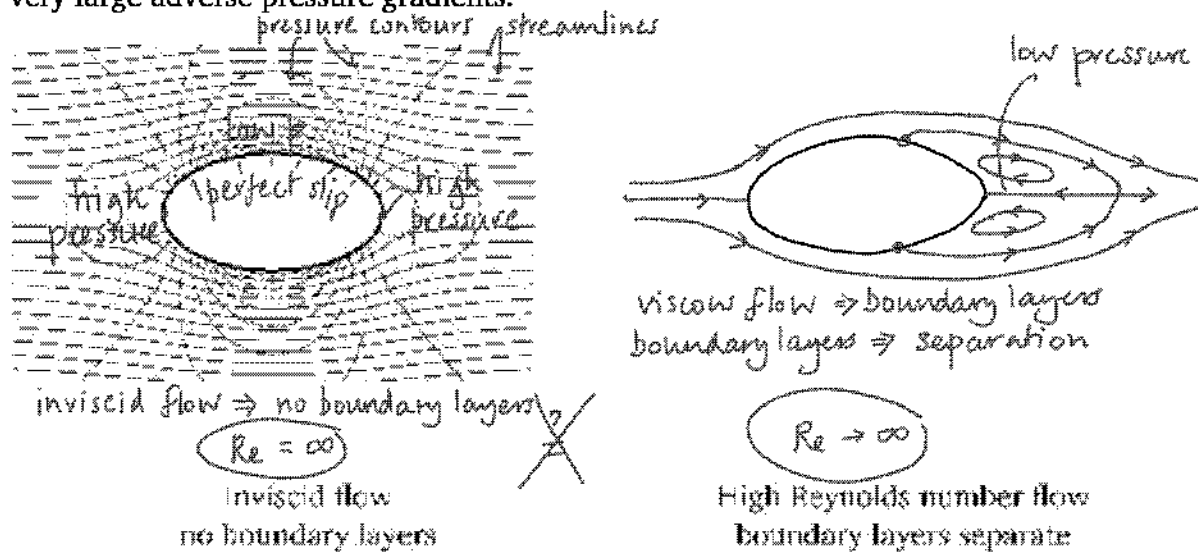 very large adverse pressure gradients.
pressure contours
streamlines
low
perfect slip
high
pressure
high
pressure
inviscid flow ⇒ no boundary layers
Re = ∞
Inviscid flow
no boundary layers
low pressure
viscous flow ⇒ boundary layers
boundary layers ⇒ separation
Re → ∞
High Reynolds number flow
boundary layers separate